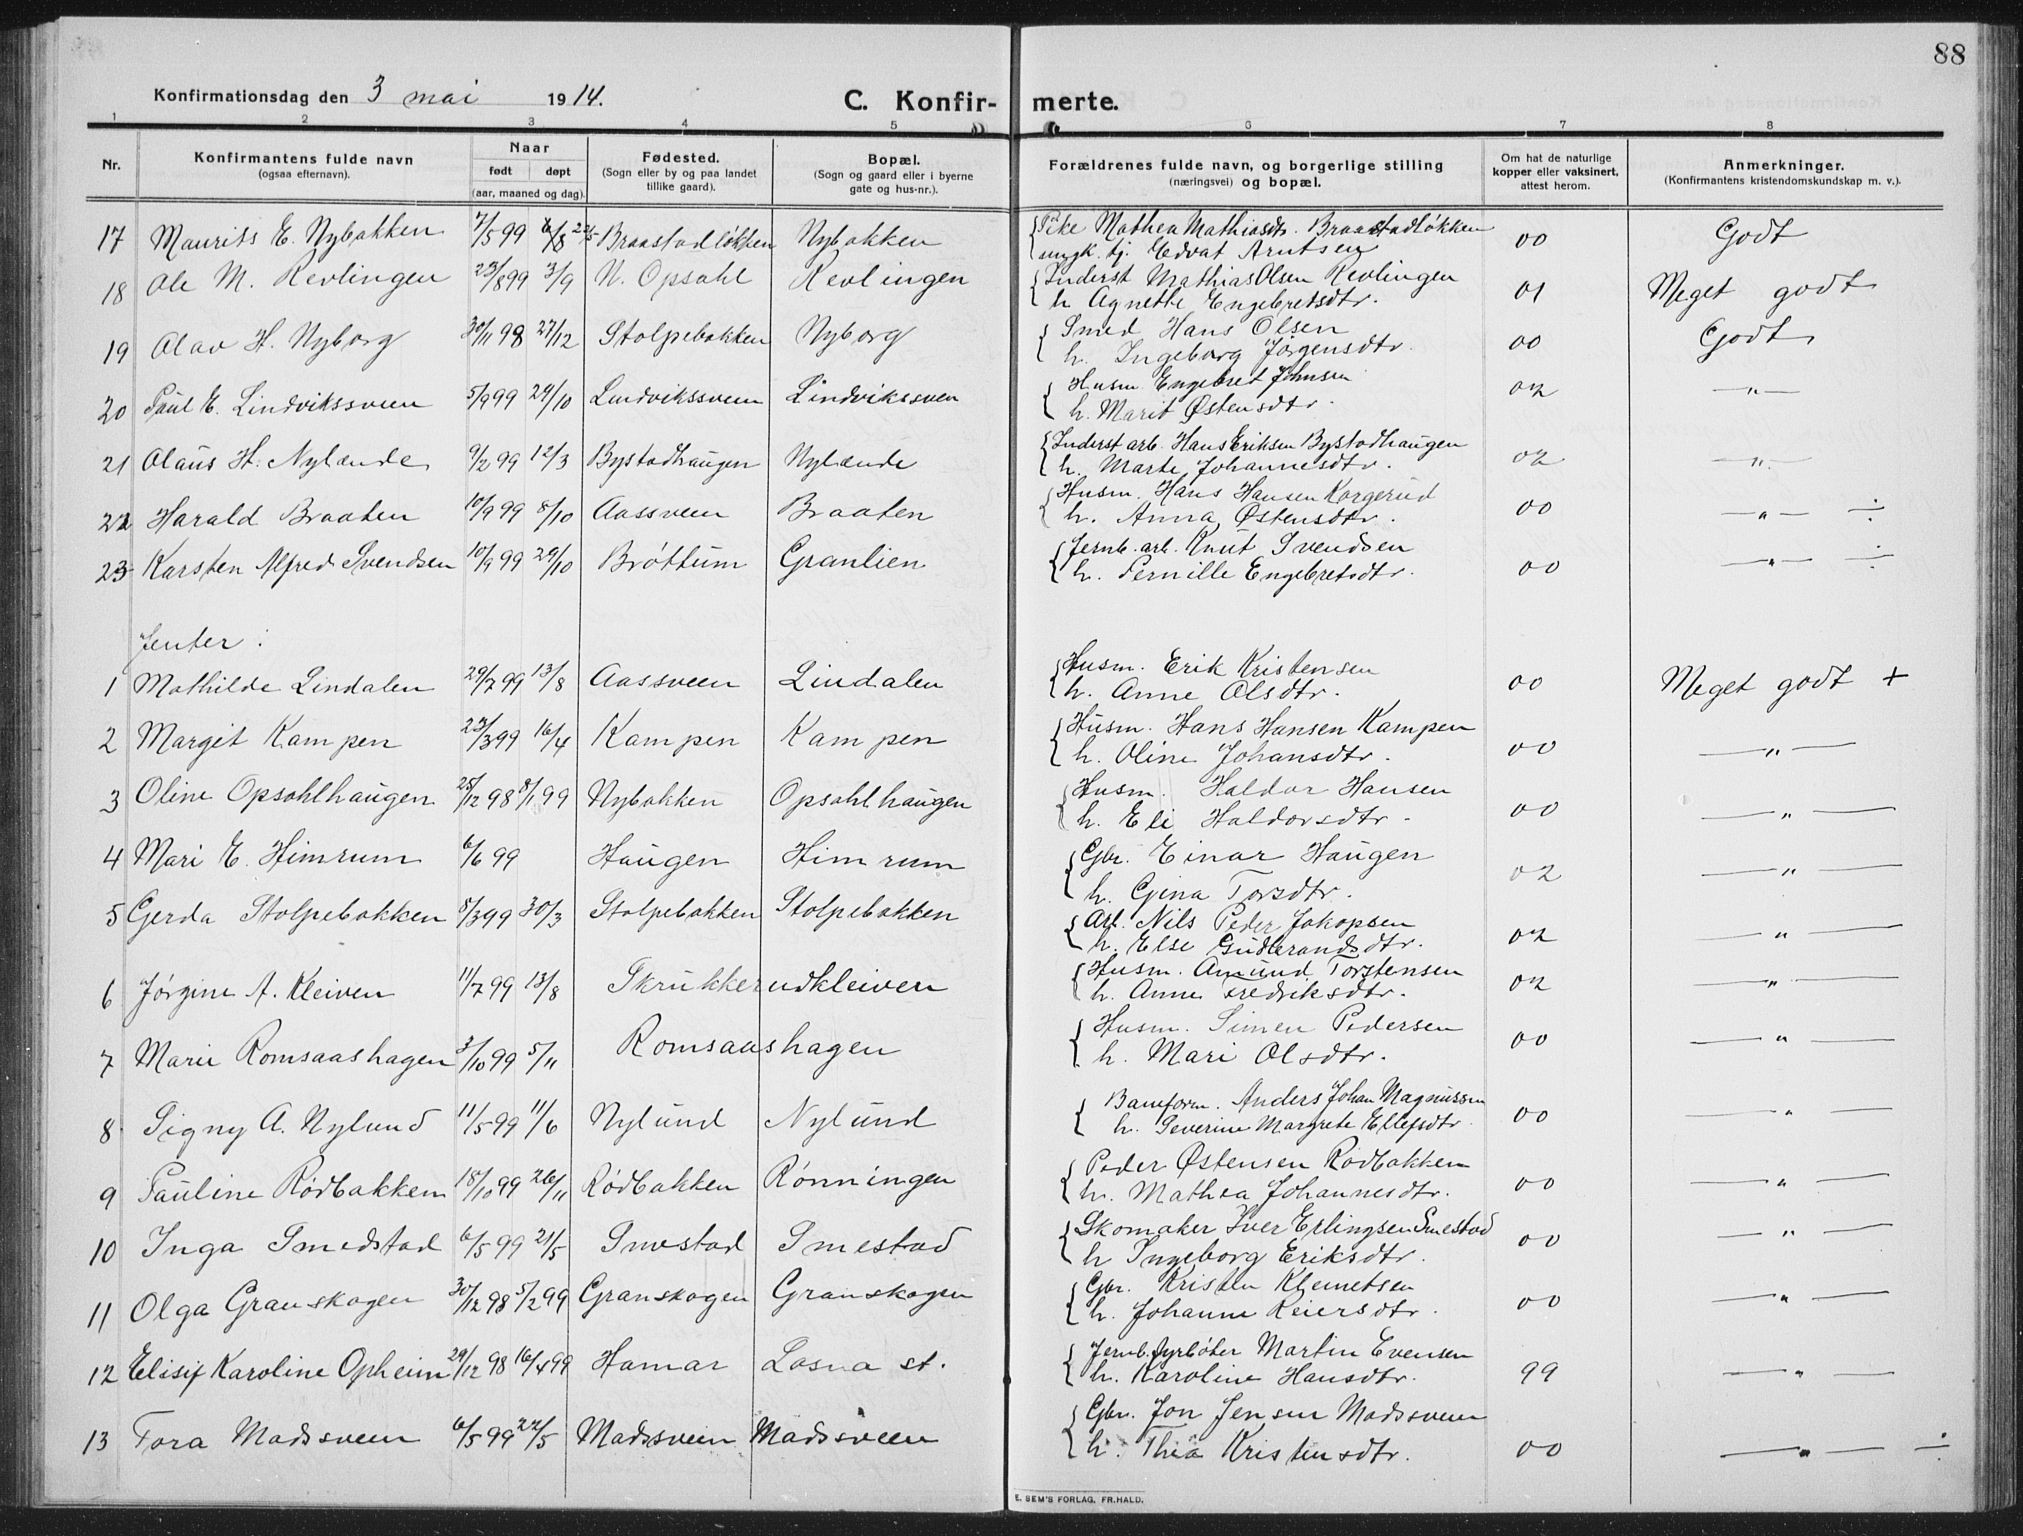 88
Konfirmationsdag den 3 mai 1914.
C. Konfir- merte.
1 2 3 4 5 6 7 8
Nr. Konfirmantens fulde navn (ogsaa efternavn). Naar født døpt (aar, maaned og dag). Fødested. (Sogn eller by og paa landet tillike gaard). Bopæl. (Sogn og gaard eller i byerne gate og hus-nr.). Forældrenes fulde navn, og borgerlige stilling (næringsvei) og bopæl. Om hat de naturlige kopper eller vaksinert, attest herom. Anmerkninger. (Konfirmantens kristendomskundskap m. v.).
17 Maurits E. Nybakken 7/5 99 6/8 Braastadløkken Nybakken Pike Mathea Mathiasdtr. Braastadløkken 00 Godt
ungk. tj. Edvat Arntsen
18 Ole M. Kevlingen 23/8 99 3/9 N. Opsahl Kevlingen Inderst Mathias Olsen Kevlingen 01 Meget godt
h. Agnethe Engebretsdtr.
19 Olav H. Nyborg 30/11 98 27/12 Stolpebakken Nyborg Smed Hans Olsen 00 Godt
h. Ingeborg Jørgensdtr.
20 Paul E. Lindvikssveen 5/9 99 29/10 Lindvikssveen Lindvikssveen Husm. Engebret Johnsen 02 — " —
h. Marit Østensdtr.
21 Olaus H. Nylænde 9/2 99 12/3 Bystadhaugen Nylænde Inderst arb. Hans Eriksen Bystadhaugen 02 — " —
h. Marte Johannesdtr.
22 Harald Braaten 10/9 99 8/10 Aassveen Braaten Husm. Hans Hansen Korgerud 00 — " — ÷
h. Anna Østensdtr.
23 Karsten Alfred Svendsen 10/9 99 29/10 Brøttum Granlien Jernb. arb. Knut Svendsen 00 — " — ÷
h. Pernille Engebretsdtr.
Jenter:
1 Mathilde Lindalen 29/7 99 13/8 Aassveen Lindalen Husm. Erik Kristensen 00 Meget godt +
h. Anne Olsdtr.
2 Margit Kampen 23/3 99 16/4 Kampen Kampen Husm. Hans Hansen Kampen 00 — " —
h. Oline Johansdtr.
3 Oline Opsahlhaugen 25/12 98 8/1 99 Nybakken Opsahlhaugen Husm. Haldor Hansen 00 — " —
h. Eli Haldorsdtr.
4 Mari E. Himrum 6/6 99 Haugen Himrum Gbr. Einar Haugen 02 — " —
h. Gina Torsdtr.
5 Gerda Stolpebakken 8/3 99 30/3 Stolpebakken Stolpebakken Arb. Nils Peder Jakopsen 02 — " —
h. Else Gudbrandsdtr.
6 Jørgine A. Kleiven 11/7 99 13/8 Skrukkerudkleiven Husm. Amund Torstensen 02 — " —
h. Anne Fredriksdtr.
7 Marie Romsaashagen 3/10 99 5/11 Romsaashagen Husm. Simen Pedersen 00 — " —
h. Mari Olsdtr.
8 Signy A. Nylund 11/5 99 11/6 Nylund Nylund Baneform. Anders Johan Magnussen 00 — " —
h. Severine Margrete Ellefsdtr
9 Pauline Rødbakken 18/10 99 26/11 Rødbakken Rønningen Peder Østensen Rødbakken 00 — " —
h. Mathea Johannesdtr.
10 Inga Smedstad 6/5 99 21/5 Smestad Smestad Skomaker Iver Erlingsen Smestad 00 — " —
h Ingeborg Eriksdtr.
11 Olga Granskogen 30/12 98 5/2 99 Granskogen Granskogen Gbr. Kristen Klemetsen 00 — " —
h. Johanne Reiersdtr.
12 Elisif Karoline Opheim 29/12 98 16/4 99 Hamar Losna st. Jernb. fyrbøter Martin Evensen 99 — " —
h. Karoline Hansdtr.
13 Tora Madssveen 6/5 99 22/5 Madssveen Madssveen Gbr. Jon Jensen Madssveen 00 — " — ÷
h. Thea Kristensdtr.
E. SEM'S FORLAG, FR.HALD.